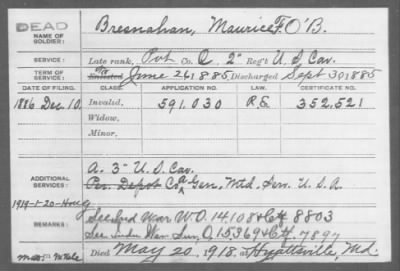 DEAD
NAME OF SOLDIER: Bresnahan, Maurice F. O'B.
SERVICE: Late rank, Pvt Co. C, 2" Reg't U.S. Cav.
TERM OF SERVICE: Enlisted June 26 1885, Discharged Sept 30 1885
DATE OF FILING. CLASS. APPLICATION NO. LAW. CERTIFICATE NO.
1886 Dec. 10. Invalid. 591.030 R.E. 352,521
Widow.
Minor.
ADDITIONAL SERVICES: A. 3" U.S. Cav.
Depot Co. A Gen. Mtd. Serv. U.S.A.
REMARKS: See Ind War W.O. 14,108 & Ctf. 8803
See Indn War Sur, O. 15369 & Ctf. 7897
Died May 20, 1918. at Hyattsville, Md.